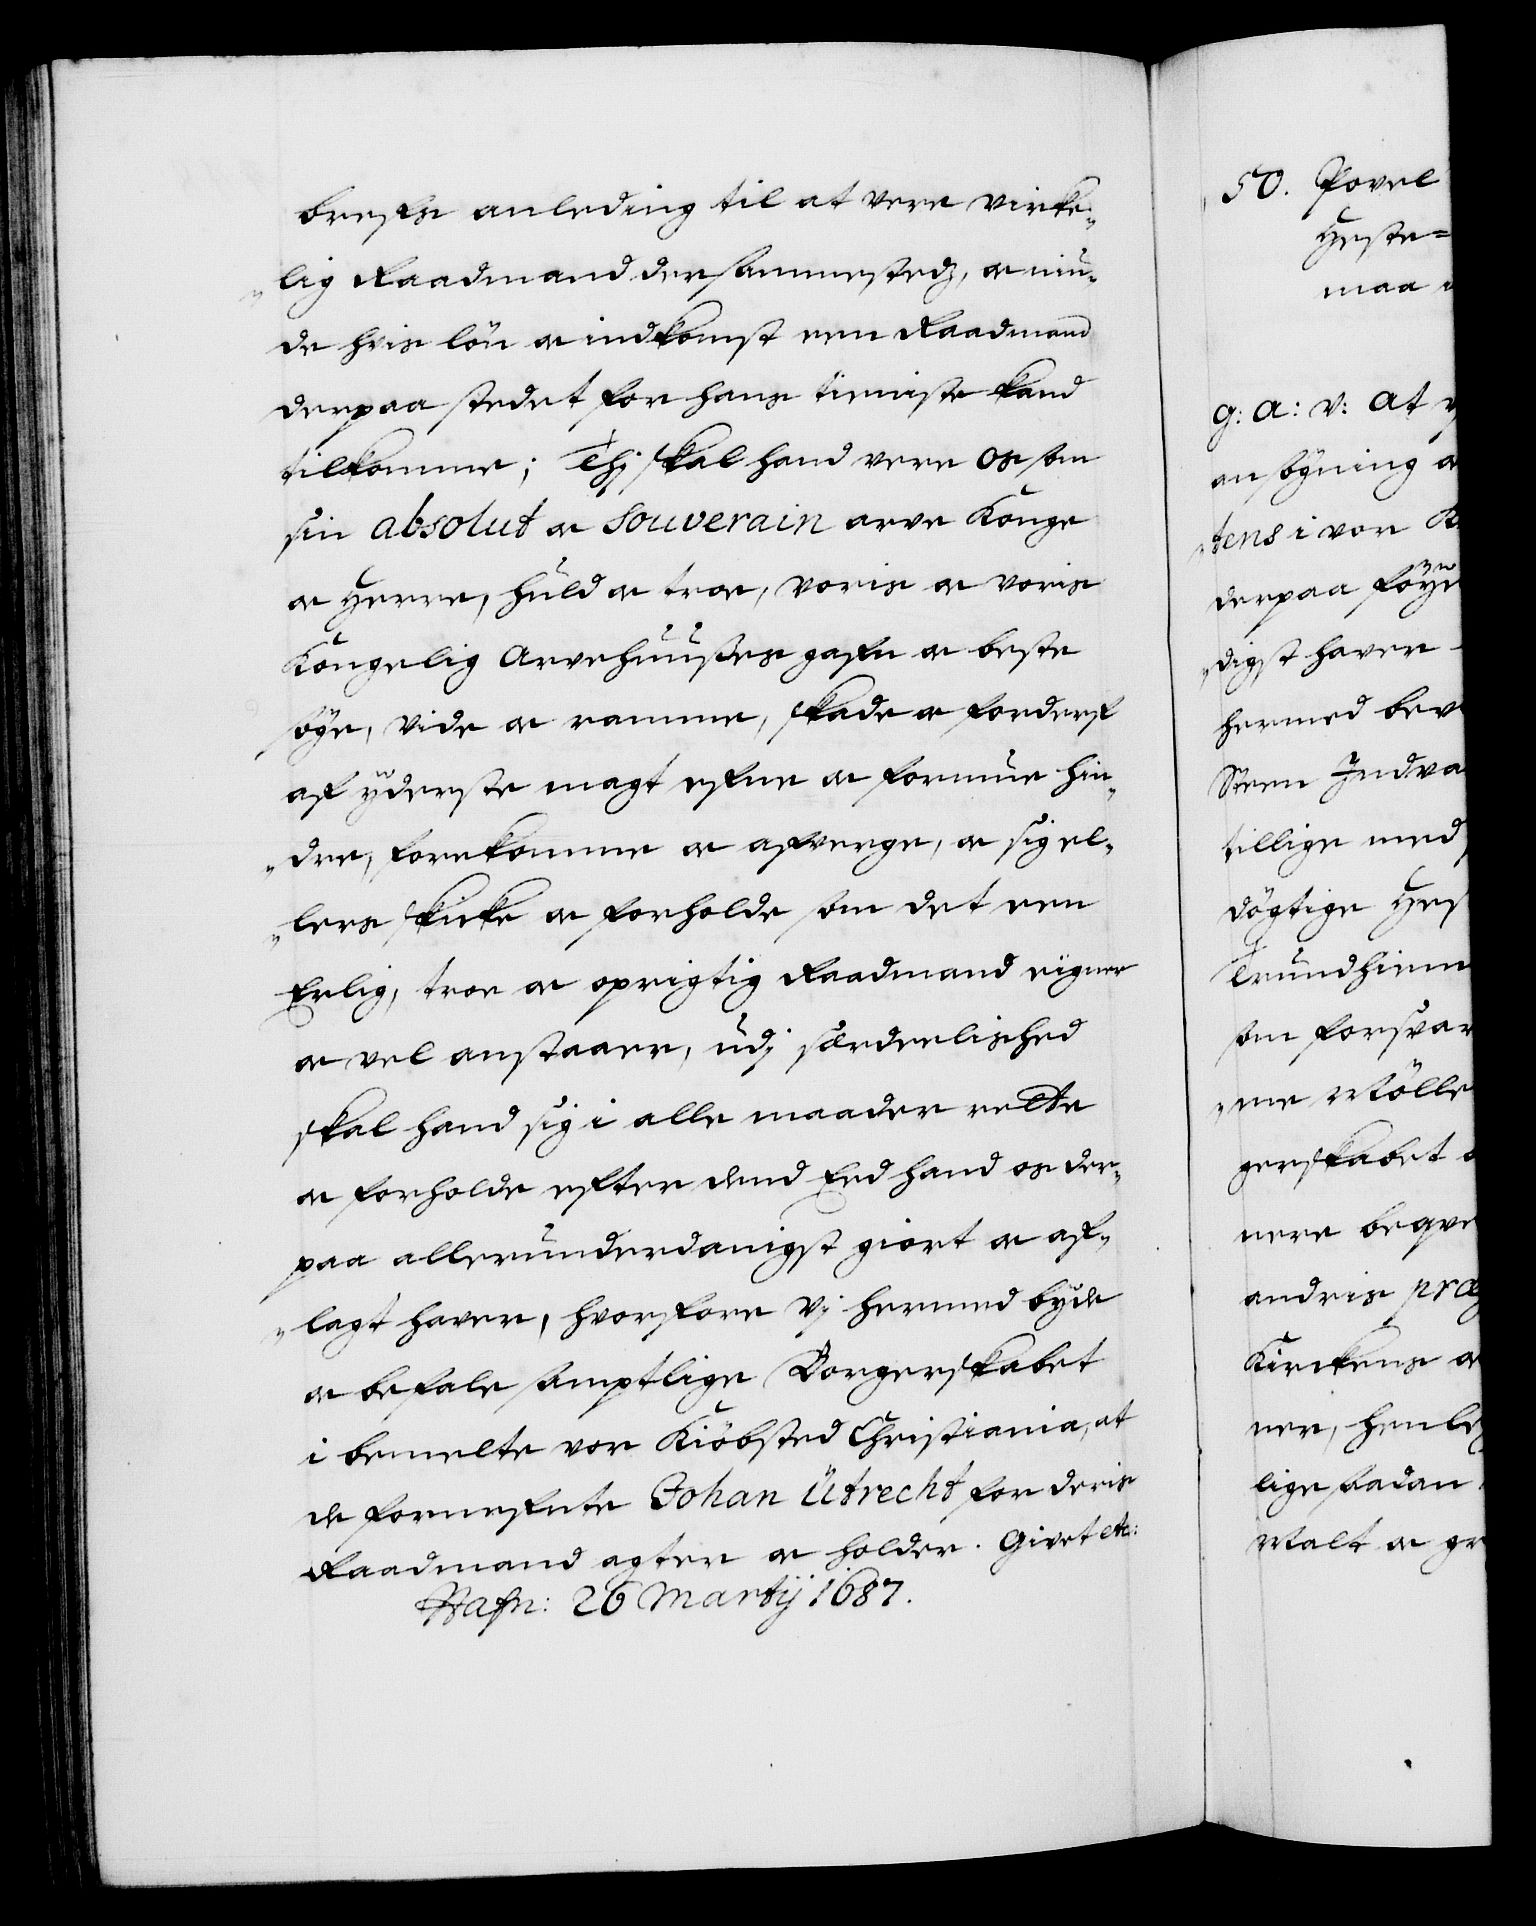 brefs anleding til at vere virke-
lig Raadmand dersammestedz, og niu-
de hvis lön og indkomst een Raadmand
derpaa stedet for hans tieniste kand
tilkomme; Thj skal hand vere Os som
sin absolut og Souverain arve Konge
og Herre, huld og troe, voris og voris
Kongelig Arvehuuses gafn og beste
söge, vide og ramme, skade og forderf
af yderste magt efne og formue hin-
dre, forekomme og afverge, og sig el-
lers skicke og forholde som det een
Erlig, troe og oprigtig Raadmand eigner
og vel anstaaer, udj særdeelished
skal hand sig i alle maader rette
og forholde efter dend Eed hand os der-
paa allerunderdanigst giort og af-
lagt haver, hvorfore Vj hermed byde
og befale samptlige Borgerskabet
i bemelte vor Kiöbsted Christiania, at
de fornefnte Johan Utrecht for deris
Raadmand agter og holder. Givet etc:
Hafn: 26 Martij 1687.
50. Povel
Heste=
maa
g: a: v: At
ansögning og
tens i vor
derpaa föye
digst haver
hermed bev
Steen Indva
tillige med
dögtige Hes
Trundhiem
som forsvar
me Mölle
gerskabet
nere beqve
andris præ
Kirckens og
ner, henle
lige saadan
Malt og gr